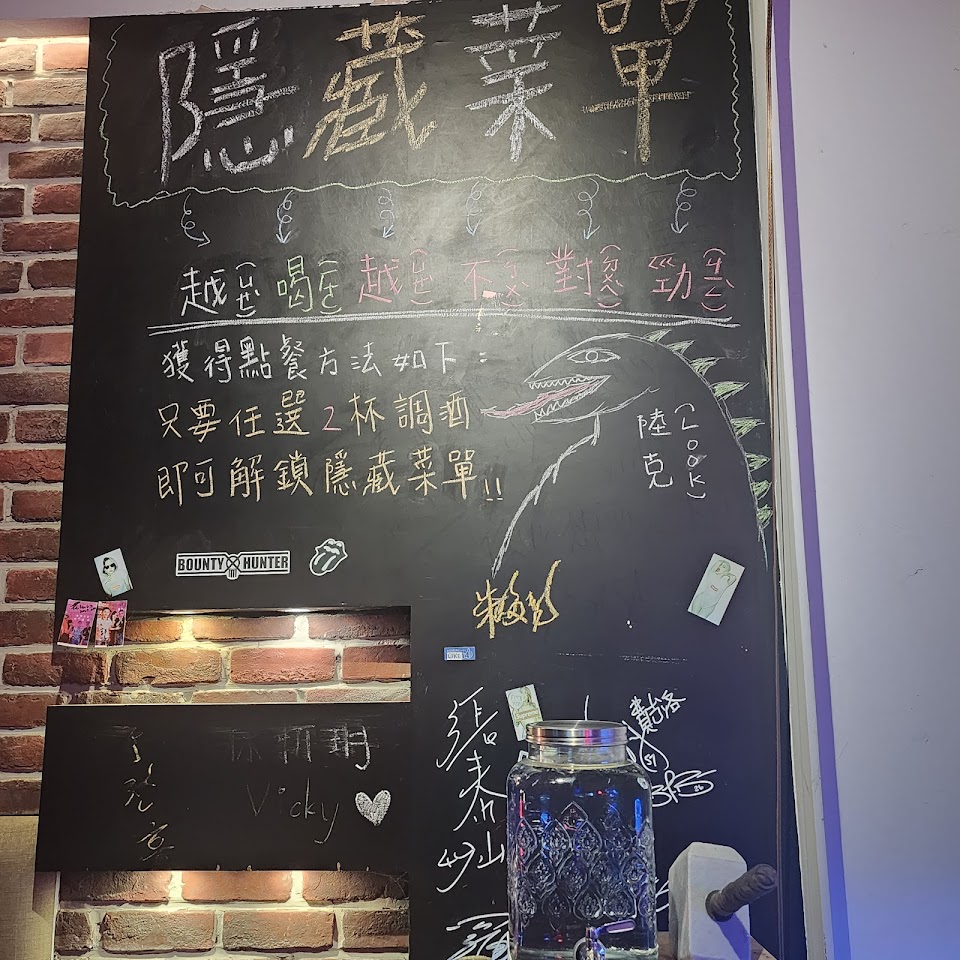 隱藏菜單
越(ㄩㄝ)喝(ㄏㄜ)越(ㄩㄝ)不(ㄅㄨ)對(ㄉㄨㄟ)勁(ㄐㄧㄥ)
獲得點餐方法如下：
只要任選2杯調酒
即可解鎖隱藏菜單!!
陸克(LOOK)
BOUNTY HUNTER
Vicky